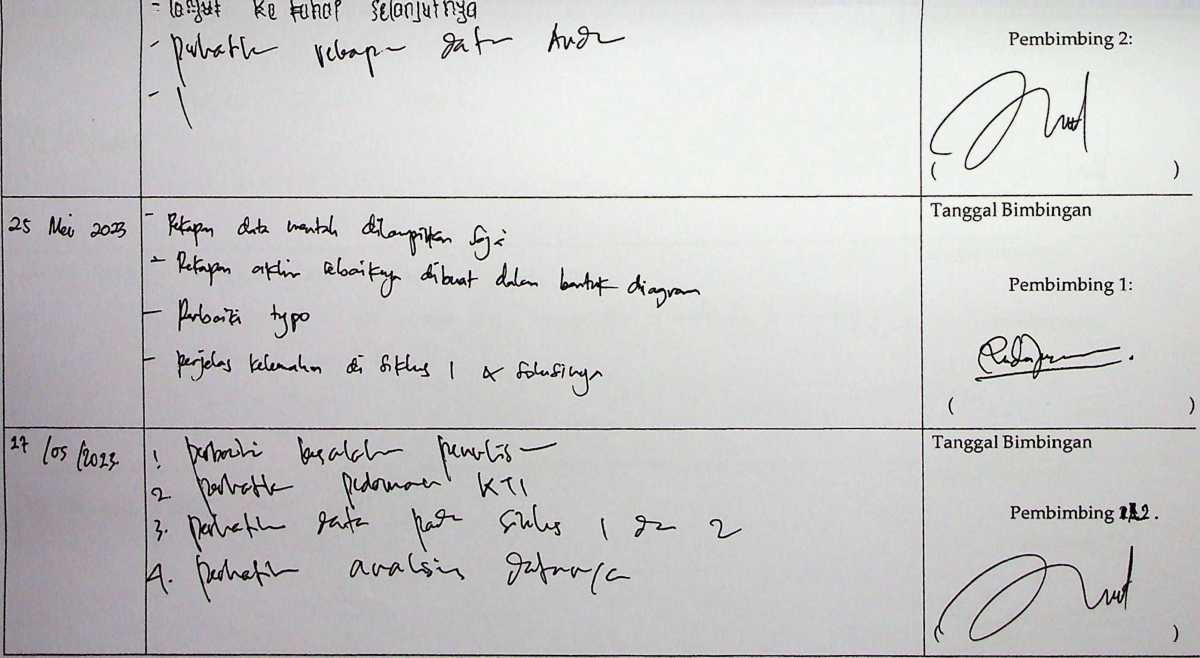 - lanjut ke tahap selanjutnya
- perhatikan rekapan data Anda
-
Pembimbing 2:
( )
25 Mei 2023
- Rekapan data mentah dilampirkan saja
- Rekapan akhir sebaiknya dibuat dalam bentuk diagram
- Perbaiki typo
- perjelas kelemahan di siklus 1 & solusinya
Tanggal Bimbingan
Pembimbing 1:
( )
27 /05 /2023
1. perbaiki kesalahan penulisan
2 perhatikan pedoman KTI
3. perhatikan data pada siklus 1 dan 2
4. perhatikan analisis datanya
Tanggal Bimbingan
Pembimbing 2.
( )